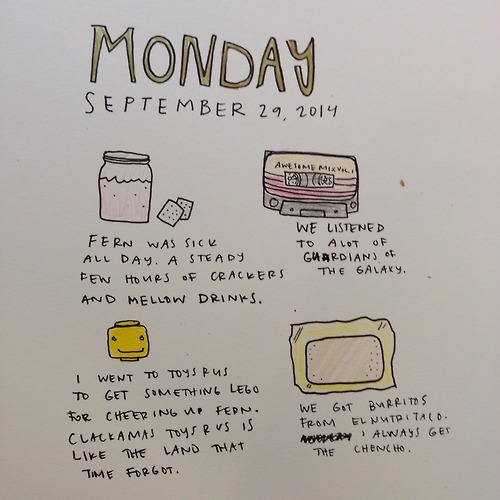 MONDAY
SEPTEMBER 29, 2014
AWESOME MIX VOL. 1
FERN WAS SICK
ALL DAY. A STEADY
FEW HOURS OF CRACKERS
AND MELLOW DRINKS.
WE LISTENED
TO ALOT OF
GUARDIANS OF
THE GALAXY.
I WENT TO TOYS R US
TO GET SOMETHING LEGO
FOR CHEERING UP FERN.
CLACKAMAS TOYS R US IS
LIKE THE LAND THAT
TIME FORGOT.
WE GOT BURRITOS
FROM EL NUTRI TACO.
I ALWAYS GET
THE CHENCHO.